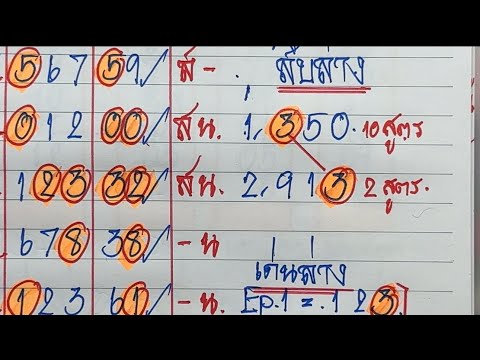 5 6 7 59/ ส - . สิบล่าง
0 1 2 00/ สน. 1, 3 5 0. 10 สูตร
1 2 3 32/ สน. 2, 9 1 3 2 สูตร.
6 7 8 38/ - น
เด่นล่าง
1 2 3 61/ - น. [Ep.1 = .1 2 3.]